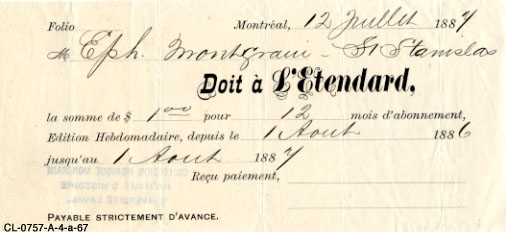 Folio Montréal, 12 Juillet 1887
M Eph. Montgrain - St Stanislas
Doit à L'Etendard,
la somme de $ 1.00 pour 12 mois d'abonnement,
Edition Hebdomadaire, depuis le 1 Aout 1886
jusqu'au 1 Aout 1887
Reçu paiement,
COLLECTION MONIQUE MONGRAIN
INSTITUT D'HISTOIRE
UNIVERSITÉ LAVAL
PAYABLE STRICTEMENT D'AVANCE.
CL-0757-A-4-a-67